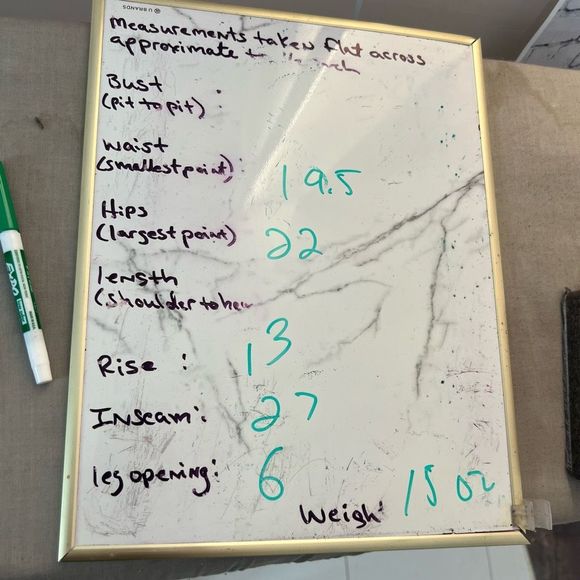 U BRANDS
Measurements taken flat across
approximate
Bust
(pit to pit) :
Waist
(smallest point) : 19.5
Hips
(largest point) 22
length
(shoulder to hem
Rise : 13
Inseam : 27
leg opening : 6
Weigh : 15 oz
EXPO